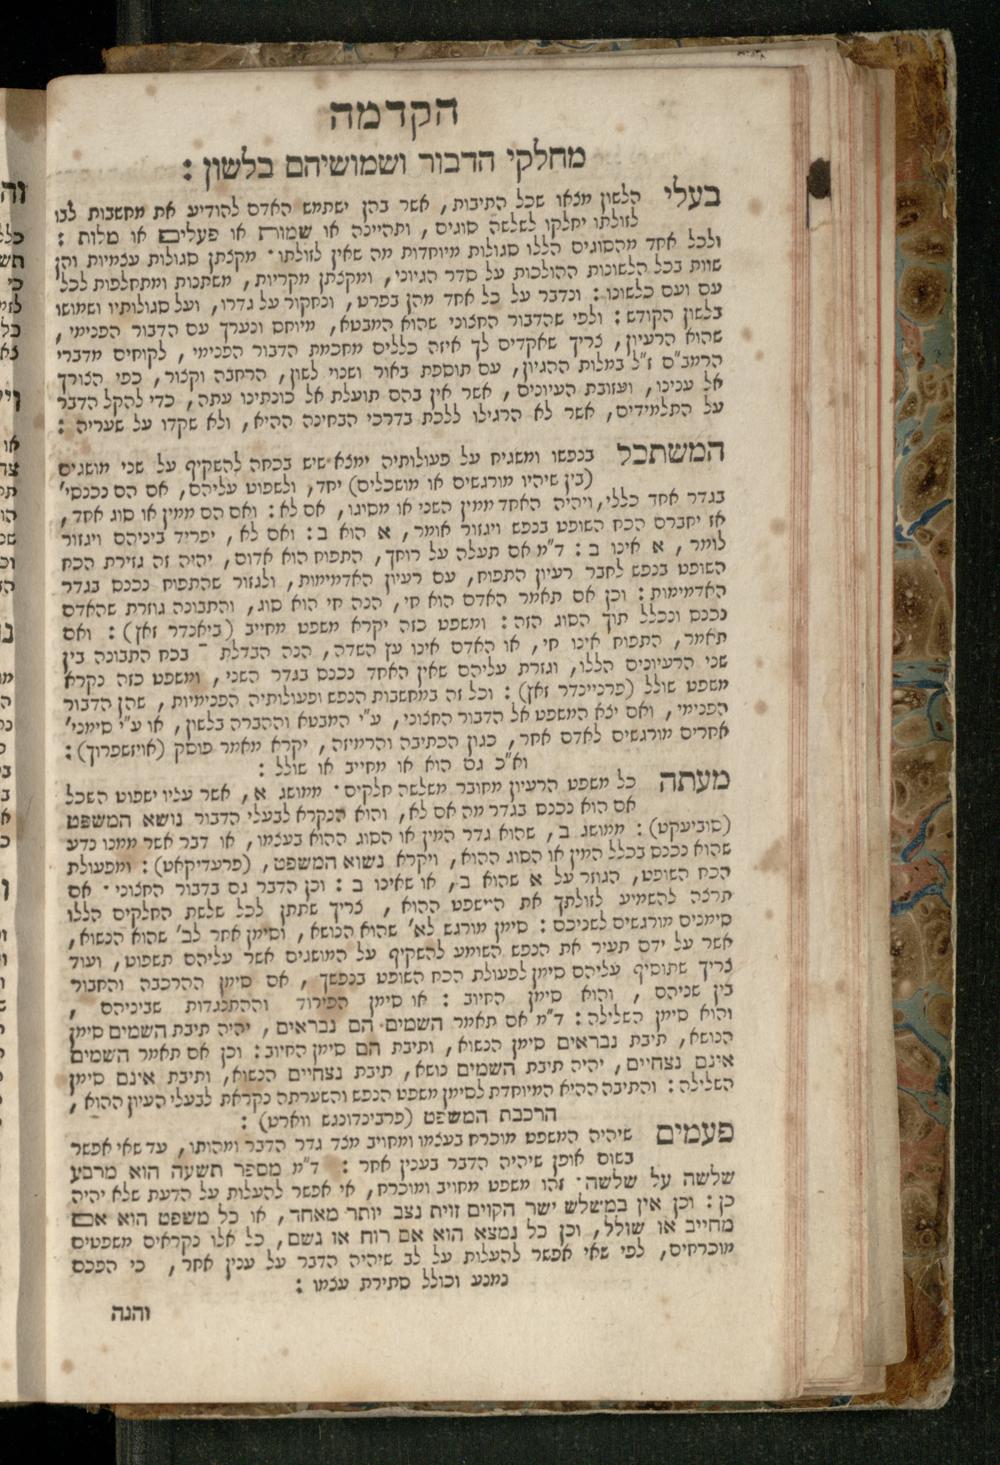 הקדמה
מחלקי הדבור ושמושיהם בלשון :
בעלי הלשון מצאו שכל התיבות, אשר בהן ישתמש האדם להודיע את מחשבות לבו
לזולתו יחלקו לשלשה סוגים, ותהיינה או שמות או פעלים או מלות :
ולכל אחד מהסוגים הללו סגולות מיוחדות מה שאין לזולתו · מקצתן סגולות עצמיות והן
שוות בכל הלשונות ההולכות על סדר הגיוני, ומקצתן מקריות, משתנות ומתחלפות לכל
עם ועם כלשונו : ונדבר על כל אחד מהן בפרט, ונחקור על גדרו, ועל סגולותיו ושמושו
בלשון הקודש : ולפי שהדבור החצוני שהוא המבטא, מיוחס ונערך עם הדבור הפנימי,
שהוא הרעיון, צריך שאקדים לך איזה כללים מחכמת הדבור הפנימי, לקוחים מדברי
הרמב"ם ז"ל במלות ההגיון, עם תוספת באור ושנוי לשון, הרחבה וקצור, כפי הצורך
אל ענינו, ועזובת העיונים, אשר אין בהם תועלת אל כונתינו עתה, כדי להקל הדבר
על התלמידים, אשר לא הרגילו ללכת בדרכי הבחינה ההיא, ולא שקדו על שעריה :
המשתכל בנפשו ומשגיח על פעולותיה ימצא שיש בכחה להשקיף על שני מושגים
(בין שיהיו מורגשים או מושכלים) יחד, ולשפוט עליהם, אם הם נכנסי'
בגדר אחד כללי, ויהיה האחד ממין השני או מסיגו, אם לא : ואם הם ממין או סוג אחד,
אז יחברם הכח השופט בנפש ויגזור אומר, א הוא ב : ואם לא, יפריד ביניהם ויגזור
לומר, א אינו ב : ד"מ אם תעלה על רוחך, התפוח הוא אדום, יהיה זה גזירת הכח
השופט בנפש לחבר רעיון התפוח, עם רעיון האדמימות, ולגזור שהתפוח נכנס בגדר
האדמימות : וכן אם תאמר האדם הוא חי, הנה חי הוא סוג, והתבונה גוזרת שהאדם
נכנס ונכלל תוך הסוג הזה : ומשפט כזה יקרא משפט מחייב (ביאנדר זאץ) : ואם
תאמר, התפוח אינו חי, או האדם אינו עץ השדה, הנה הבדלת - בכח התבונה בין
שני הרעיונים הללו, וגזרת עליהם שאין האחד נכנס בגדר השני, ומשפט כזה נקרא
משפט שולל (פרניינדר זאץ) : וכל זה במחשבות הנפש ופעולותיה הפנימיות, שהן הדבור
הפנימי, ואם יצא המשפט אל הדבור החצוני, ע"י המבטא וההברה בלשון, או ע"י סימני'
אחרים מורגשים לאדם אחר, כגון הכתיבה והרמיזה, יקרא מאמר פוסק (אויזשפרוך) :
וא"כ גם הוא או מחייב או שולל :
מעתה כל משפט הרעיון מחובר משלשה חלקים · ממושג א, אשר עליו ישפוט השכל
אם הוא נכנס בגדר מה אם לא, והוא הנקרא לבעלי הדבור נושא המשפט
(סוביעקט) : ממושג ב, שהוא גדר המין או הסוג ההוא בעצמו, או דבר אשר ממנו נדע
שהוא נכנס בכלל המין או הסוג ההוא, ויקרא נשוא המשפט, (פרעדיקאט) : ומפעולת
הכח השופט, הגוזר על א שהוא ב, או שאינו ב : וכן הדבר גם בדבור החצוני · אם
תרצה להשמיע לזולתך את המשפט ההוא, צריך שתתן לכל שלשת החלקים הללו
סימנים מורגשים לשניכם : סימן מורגש לא' שהוא הנושא, וסימן אחר לב' שהוא הנשוא,
אשר על ידם תעיר את הנפש השומע להשקיף על המושגים אשר עליהם תשפוט, ועוד
צריך שתוסיף עליהם סימן לפעולת הכח השופט בנפשך, אם סימן ההרכבה והחבור
בין שניהם, והוא סימן החיוב : או סימן הפירוד וההתנגדות שביניהם,
והוא סימן השלילה : ד"מ אם תאמר השמים הם נבראים, יהיה תיבת השמים סימן
הנושא, תיבת נבראים סימן הנשוא, ותיבת הם סימן החיוב : וכן אם תאמר השמים
אינם נצחיים, יהיה תיבת השמים נושא, תיבת נצחיים הנשוא, ותיבת אינם סימן
השלילה : והתיבה ההיא המיוחדת לסימן משפט הנפש והשערתה נקראת לבעלי העיון ההוא,
הרכבת המשפט (פרבינדונגש ווארט) :
פעמים שיהיה המשפט מוכרח בעצמו ומחויב מצד גדר הדבר ומהותו, עד שאי אפשר
בשום אופן שיהיה הדבר בענין אחר : ד"מ מספר תשעה הוא מרבע
שלשה על שלשה · זהו משפט מחויב ומוכרח, אי אפשר להעלות על הדעת שלא יהיה
כן : וכן אין במשלש ישר הקוים זוית נצב יותר מאחד, או כל משפט הוא אם
מחייב או שולל, וכן כל נמצא הוא אם רוח או גשם, כל אלו נקראים משפטים
מוכרחים, לפי שאי אפשר להעלות על לב שיהיה הדבר על ענין אחר, כי הפכם
נמנע וכולל סתירת עצמו :
והנה